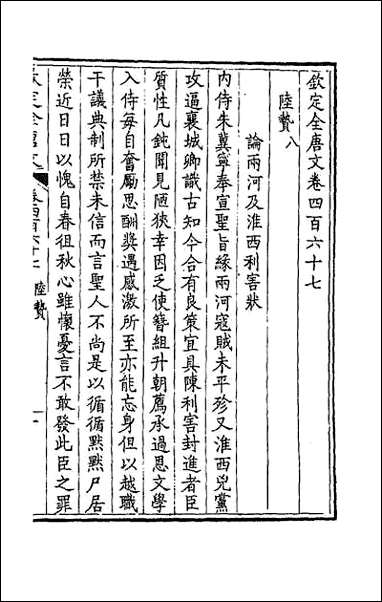 欽定全唐文卷四百六十七
陸贄八
論兩河及淮西利害狀
內侍朱冀寧奉宣聖旨緣兩河寇賊未平殄又淮西兇黨
攻逼襄城卿識古知今合有良策宜具陳利害封進者臣
質性凡鈍聞見陋狹幸因乏使簪組升朝薦承過恩文學
入侍每自奮勵思酬獎遇感激所至亦能忘身但以越職
干議典制所禁未信而言聖人不尚是以循循默默尸居
榮近日日以愧自春徂秋心雖懷憂言不敢發此臣之罪
陸贄